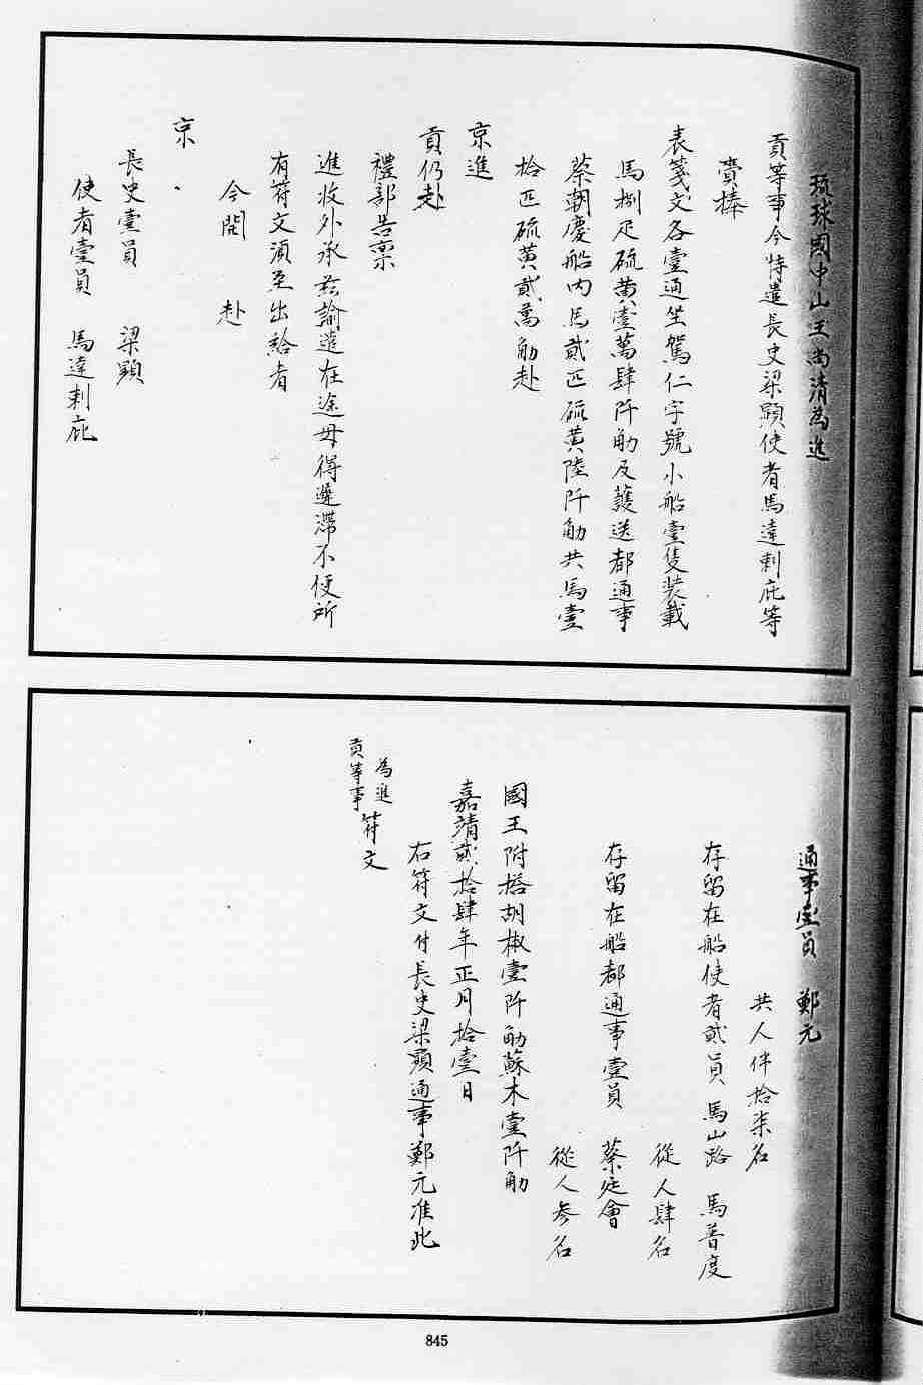 琉球國中山王尚清為進
貢等事今特遣長史梁顯使者馬達剌庇等
賫捧
表箋文各壹通坐駕仁字號小船壹隻裝載
馬捌疋硫黄壹萬肆阡觔及護送都通事
蔡朝慶船内馬貳匹硫黄陸阡觔共馬壹
拾匹硫黄貳萬觔赴
京進
貢仍赴
禮部告稟
進收外承茲諭遣在途毋得遲滯不便所
有符文須至出給者
今開 赴
京
長史壹員 梁顯
使者壹員 馬達剌庇
通事壹員 鄭元
共人伴拾柒名
存留在船使者貳員 馬山路 馬普度
從人肆名
存留在船都通事壹員 蔡廷會
從人參名
國王附搭胡椒壹阡觔蘇木壹阡觔
嘉靖貳拾肆年正月拾壹日
右符文付長史梁顯通事鄭元准此
為進
貢等事
符文
845